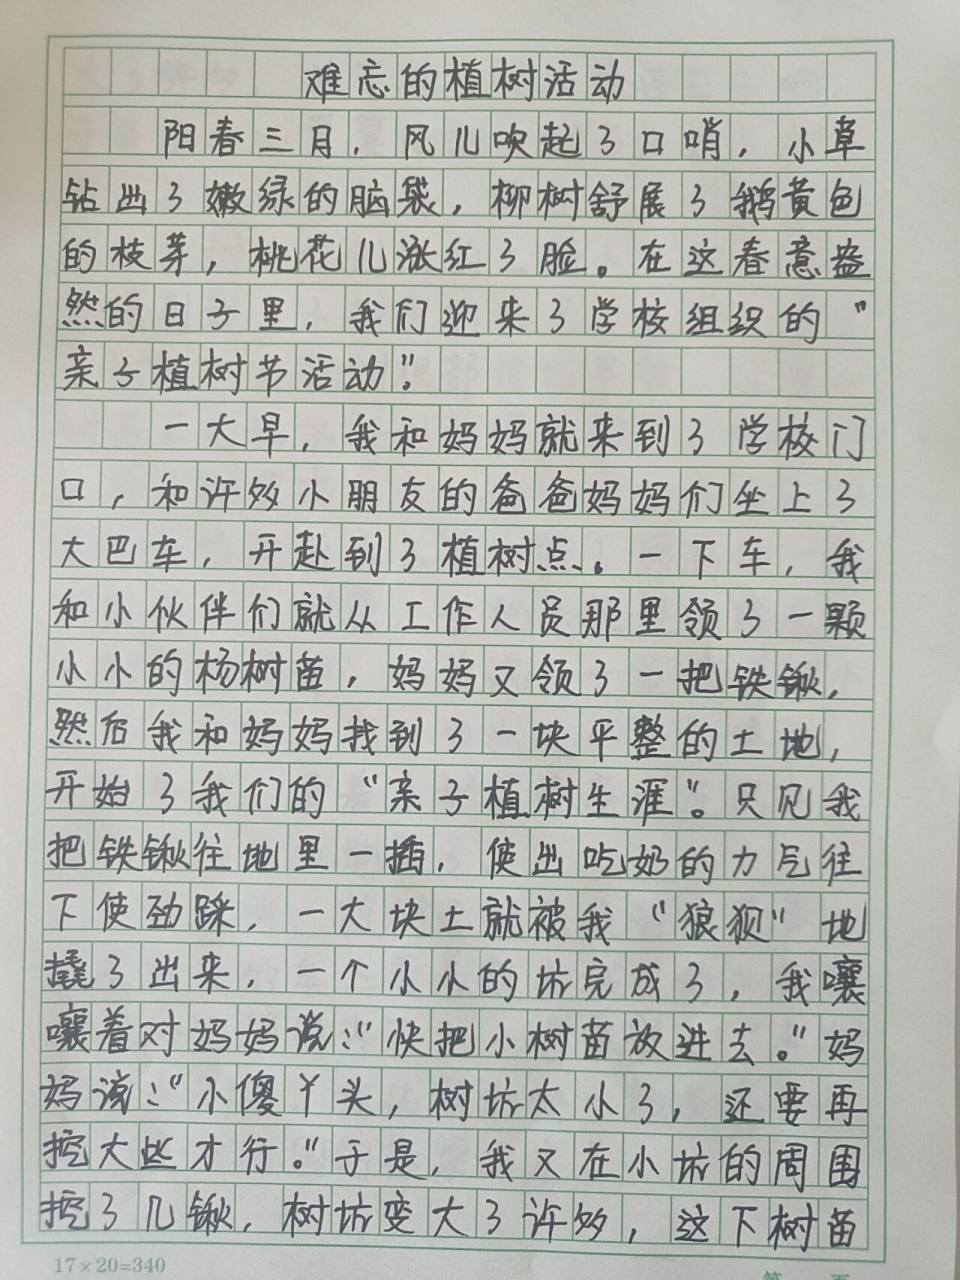 难忘的植树活动
阳春三月，风儿吹起了口哨，小草
钻出了嫩绿的脑袋，柳树舒展了鹅黄色
的枝芽，桃花儿涨红了脸。在这春意盎
然的日子里，我们迎来了学校组织的“
亲子植树节活动”。
一大早，我和妈妈就来到了学校门
口，和许多小朋友的爸爸妈妈们坐上了
大巴车，开赴到了植树点。一下车，我
和小伙伴们就从工作人员那里领了一颗
小小的杨树苗，妈妈又领了一把铁锹，
然后我和妈妈找到了一块平整的土地，
开始了我们的“亲子植树生涯”。只见我
把铁锹往地里一插，使出吃奶的力气往
下使劲踩，一大块土就被我“狼狈”地
撬了出来，一个小小的坑完成了，我嚷
嚷着对妈妈说：“快把小树苗放进去。”妈
妈说：“小傻丫头，树坑太小了，还要再
挖大些才行。”于是，我又在小坑的周围
挖了几锹，树坑变大了许多，这下树苗
17×20=340
第 页